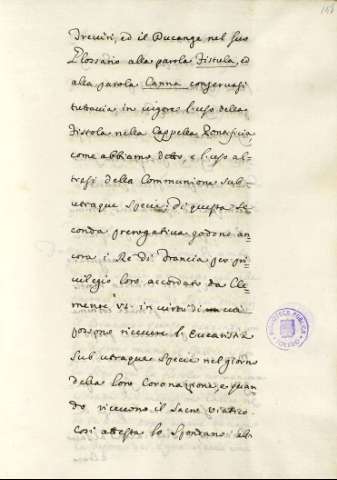 Treviri, ed il Ducange nel suo
Glossario alla parola Fistula, ed
alla parola Canna conservasi
tuttavia in vigore l'uso della
Fistola nella Cappella Pontificia
come abbiamo detto, e l'uso al=
tresì della Communione sub
utraque specie: di questa se
conda prerogativa godono an
cora i Re di Francia per pri
vilegio loro accordato da Cle
mente VI. in virtù di cui
possono ricevere l'Eucaristia
sub utraque specie nel giorno
della loro Coronazione, e quan
do ricevono il Sacro Viatico.
Così attesta lo Spondano : altri
BIBLIOTECA PUBLICA
TOLEDO